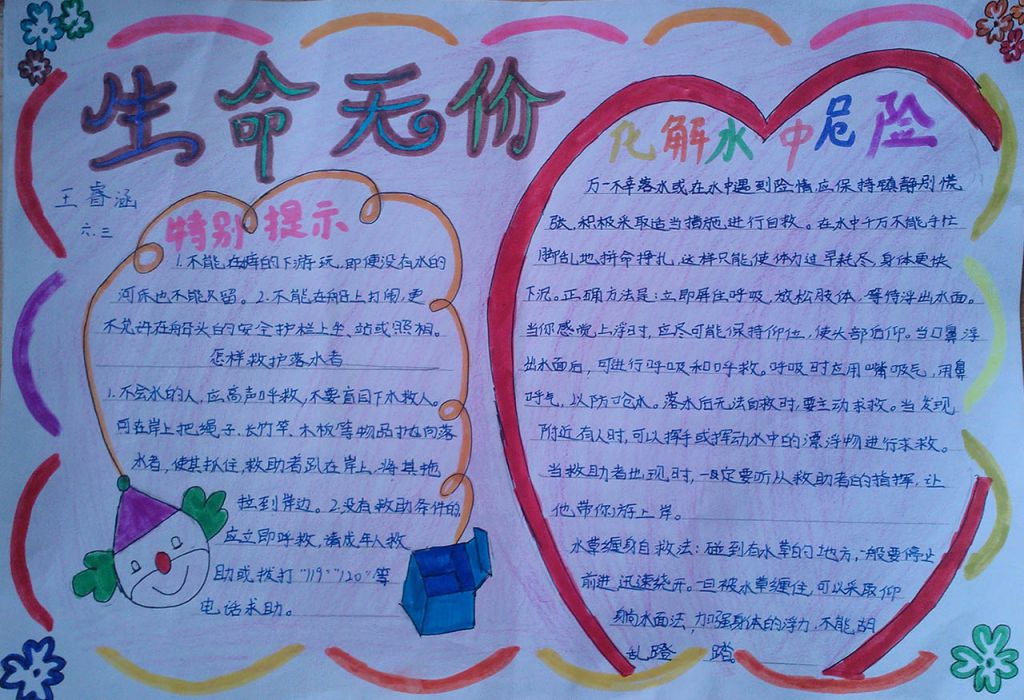 生命无价
王睿涵
六.三
特别提示
1.不能在库的下游玩,即便没有水的
河床也不能久留。2.不能在船上打闹,更
不允许在船头的安全护栏上坐、站或照相。
怎样救护落水者
1.不会水的人,应高声呼救,不要盲目下水救人。
可在岸上把绳子、长竹竿、木板等物品抛向落
水者,使其抓住,救助者趴在岸上,将其拖
拉到岸边。2.没有救助条件的
应立即呼救,请成年人救
助或拨打"119""120"等
电话求助。
化解水中危险
万一不幸落水或在水中遇到险情,应保持镇静,别慌
张,积极采取适当措施,进行自救。在水中千万不能手忙
脚乱地拼命挣扎,这样只能使体力过早耗尽,身体更快
下沉。正确方法是:立即屏住呼吸,放松肢体,等待浮出水面。
当你感觉上浮时,应尽可能保持仰位,使头部后仰。当口鼻浮
出水面后,可进行呼吸和呼救。呼吸时应用嘴吸气,用鼻
呼气,以防呛水。落水后无法自救时,要主动求救。当发现
附近有人时,可以挥手或挥动水中的漂浮物进行求救。
当救助者出现时,一定要听从救助者的指挥,让
他带你游上岸。
水草缠身自救法:碰到有水草的地方,一般要停止
前进,迅速绕开。一旦被水草缠住,可以采取仰
躺水面法,加强身体的浮力,不能胡
乱蹬踏。